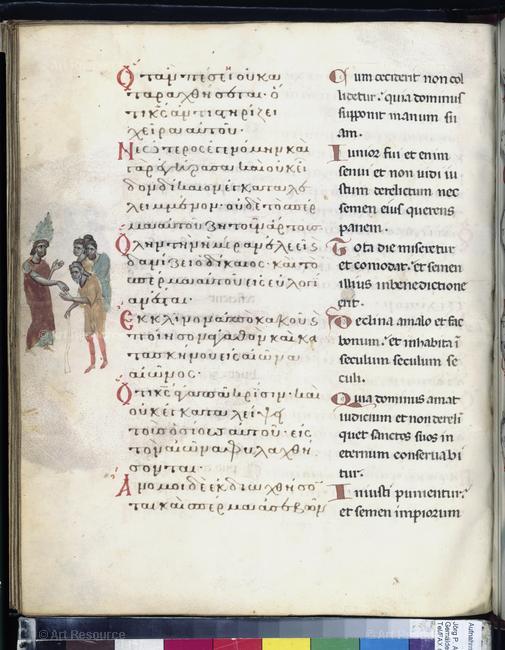 Ὅταν πέσηι οὐ κα
ταραχθήσεται· ὅ
τι κς ἀντιστηρίζει
χεῖρα αὐτοῦ·
Νεώτερος ἐγενόμην καὶ
γὰρ ἐγήρασα καὶ οὐκ εἶ
δον δίκαιον ἐγκαταλε
λειμμένον· οὐδὲ τὸ σπέρ
μα αὐτοῦ ζητοῦν ἄρτους
Ὅλην τὴν ἡμέραν ἐλεεῖ κς
δανίζει ὁ δίκαιος· καὶ τὸ
σπέρμα αὐτοῦ εἰς εὐλογί
αν ἔσται·
Ἔκκλινον ἀπὸ κακοῦ κς
ποίησον ἀγαθὸν καὶ κα
τασκήνου εἰς αἰῶνα
αἰῶνος·
Ὅτι κς ἀγαπᾶ κρίσιν· καὶ
οὐκ ἐγκαταλείψη
τοὺς ὁσίους αὐτοῦ· εἰς
τὸν αἰῶνα φυλαχθή
σονται·
Ἄνομοι δὲ ἐκδιωχθήσο
ται καὶ σπέρμα ἀσεβῶν
Cum ceciderit non col
lidetur: quia dominus
supponit manum su
am.
Iunior fui et enim
senui et non uidi iu
stum derelictum nec
semen eius querens
panem.
Tota die miseretur
et comodat: et semen
illius inbenedictione
erit.
Declina amalo et fac
bonum: et inhabita ī
seculum seculum se
culi.
Quia dominus amat
iudicium et non dereli
quet sanctos suos in
eternum conseruabū
tur.
Iniusti punientur:
et semen impiorum
© Art Resource
© Art Resource